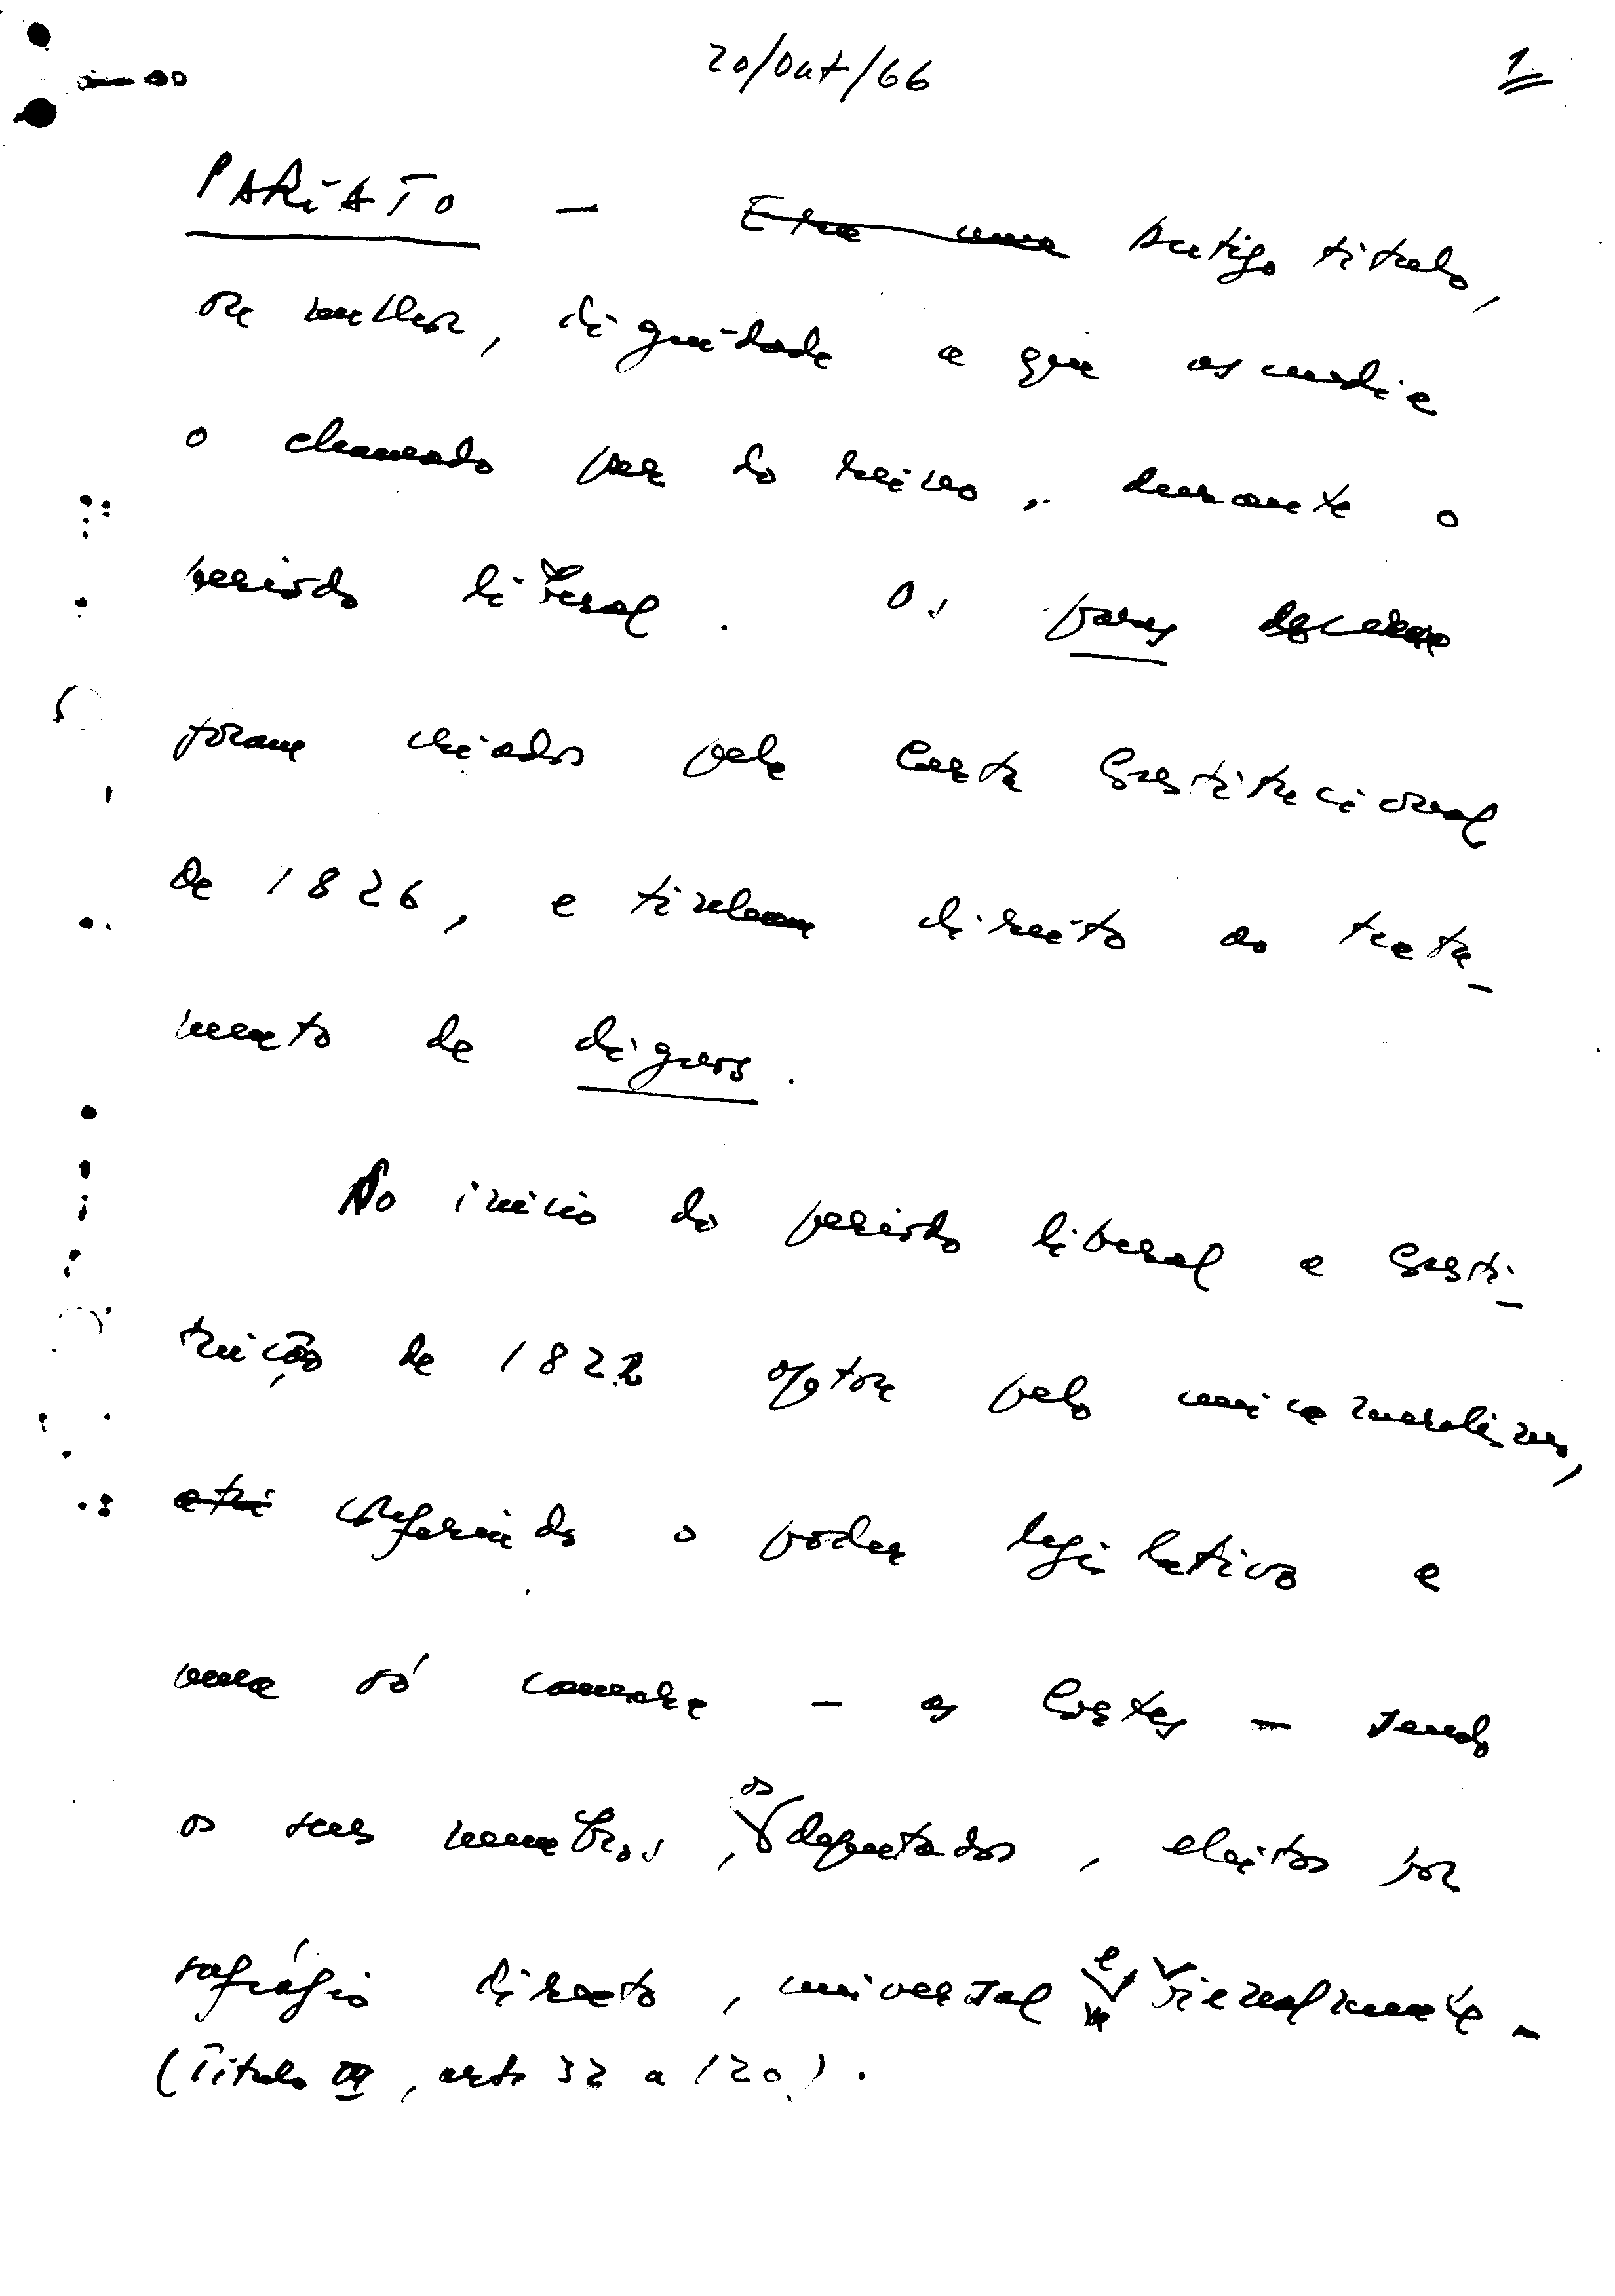 20/Out/66
1
PARIATO — Era uma Antigo título,
ou melhor, dignidade a que ascendia
o chamado par do reino, durante o
período liberal. Os pares
foram criados pela Carta Constitucional
de 1826, e tinham direito ao trata-
mento de dignos.
No início do período liberal a Consti-
tuição de 1822 optou pelo unicamaralismo,
conferindo o poder legislativo a
uma só camara — as Cortes — sendo
os seus membros, os deputados, eleitos por
sufrágio directo, universal e bienalmente
(Título III, arts 32 a 120).